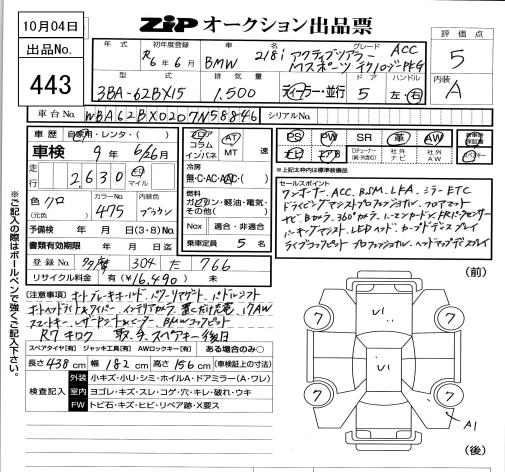 10月04日
出品No.
443
ZiP オークション出品票
評価点
5
内装
A
年式 初年度登録 車名 グレード
R6年6月 BMW 218i アクティブツアラー ACC
Mスポーツ テクノロジーPKG
型式 排気量 ドア ハンドル
3BA-62BX15 1.500 ディーラー・並行 5 左・右
車台No. WBA62BX0207N58846 シリアルNo.
車歴 自家用・レンタ・( )
車検 9年6/26月
走行 2,630 km マイル
色 クロ カラーNo. 475 内装色 ブラウン
(元色)
予備検 年 月 日(3・8)No.
書類有効期限 年 月 日
登録No. 多摩 304 た 766
リサイクル料金 有(¥16,490) 未
フロア コラム インパネ
AT MT 速
冷房
無・C・AC・AAC・( )
燃料
ガソリン・軽油・電気・その他( )
Nox 適合・非適合
乗車定員 5 名
PS PW SR 革 AW
ナビ エアB Dチューナー(純・外含む) 社外ナビ 社外AW
※上記点太枠は標準装備品
セールスポイント
ワンオーナー、ACC、BSM、LFA、ミラーETC
ドライビングアシストプロフェッショナル、フロアマット
パーキングアシスト、LEDヘッド、カーブドディスプレイ
ライブコックピットプロフェッショナル、ヘッドアップディスプレイ
[注意事項] オートブレーキホールド パワーリアゲート パドルシフト
オートヘッドライト&ワイパー 置くだけ充電 17AW
スマートキー
R7キロク 取、予、スペアキー後日
スペアタイヤ[有] ジャッキ工具[有] AWロックキー[有] ある場合のみ○
長さ438cm 幅182cm 高さ156cm(車検証上の寸法)
検査記入
外装 小キズ・小U・シミ・ホイルA・ドアミラー(A・ワレ)
室内 ヨゴレ・キズ・スレ・コゲ・穴・キレ・破れ・ウキ
FW トビ石・キズ・ヒビ・リペア跡・X要ス
※ご記入の際はボールペンで強くご記入下さい。
(前)
7 7
7 7
A1
(後)